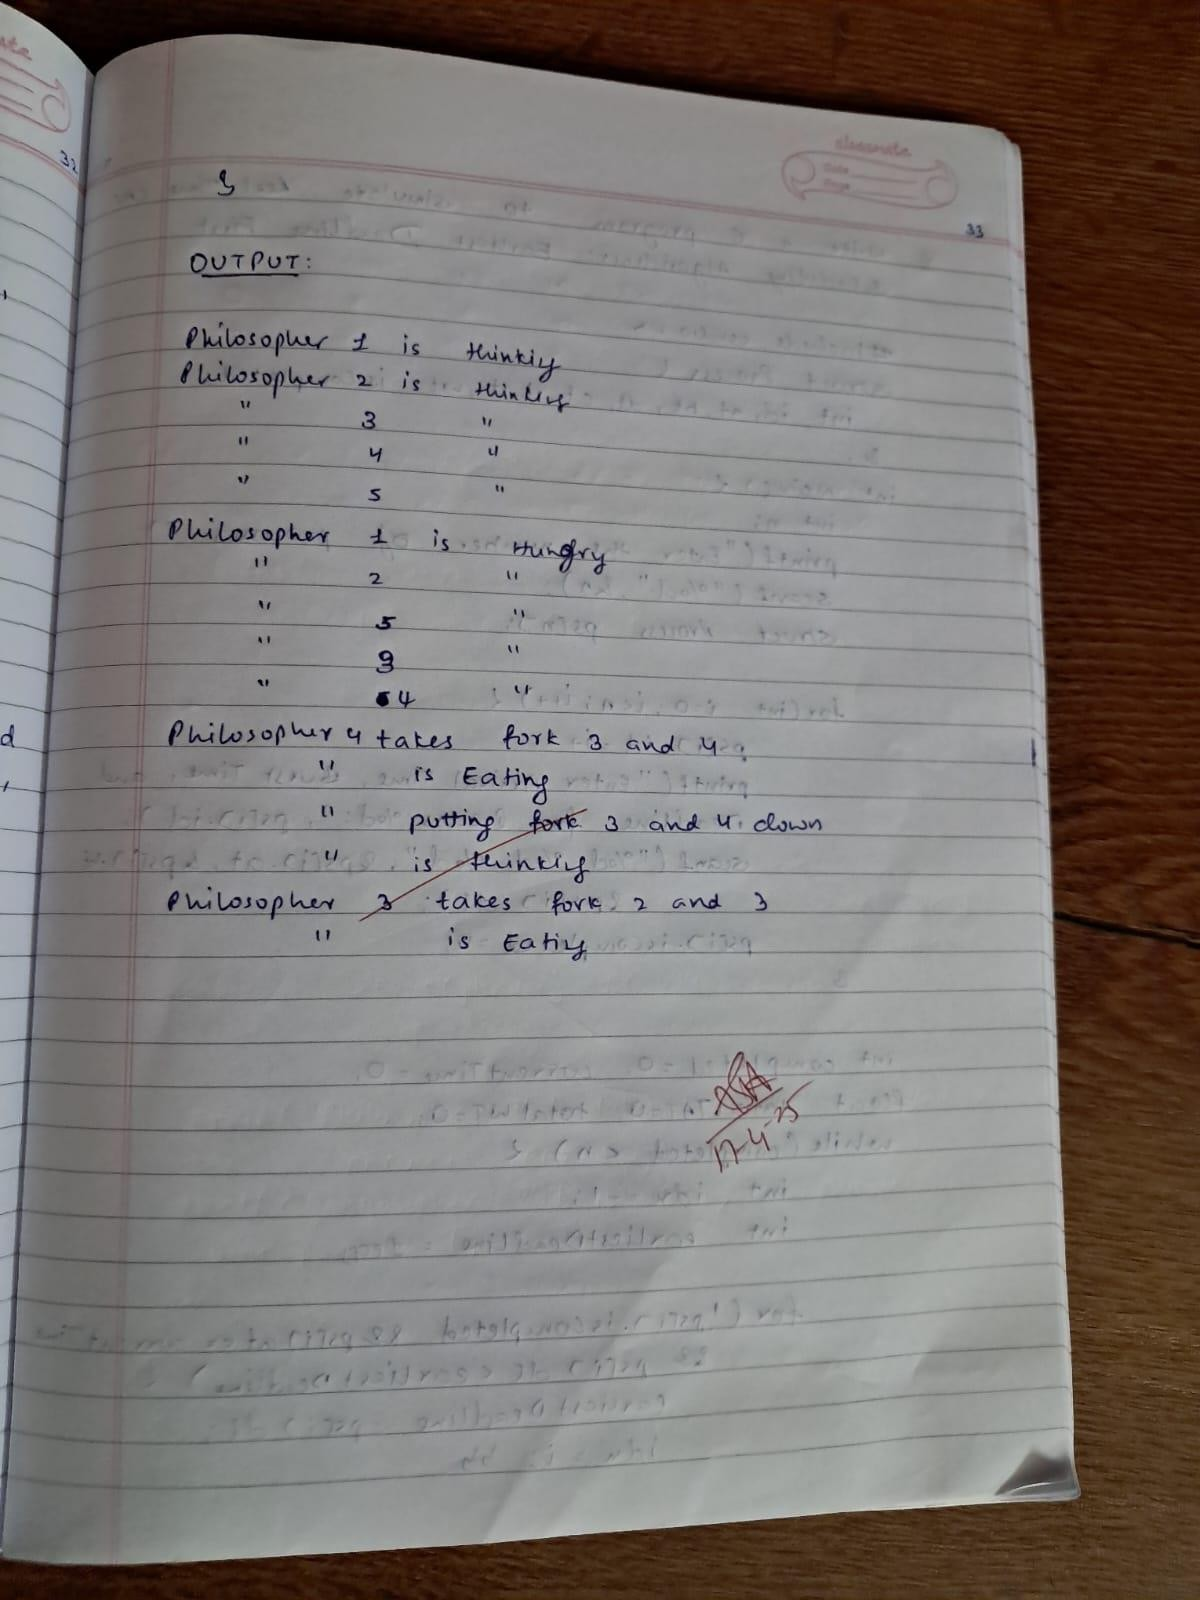 classmate
Date
Page
32
33
}
OUTPUT:
Philosopher 1 is thinkig
Philosopher 2 is thinking
" 3 "
" 4 "
" 5 "
Philosopher 1 is Hungry
" 2 "
" 5 "
" 3 "
" 4 "
Philosopher 4 takes fork 3 and 4.
" is Eating
" putting fork 3 and 4 down
" is thinkig
Philosopher 3 takes fork 2 and 3
" is Eatig
d
17-4-25